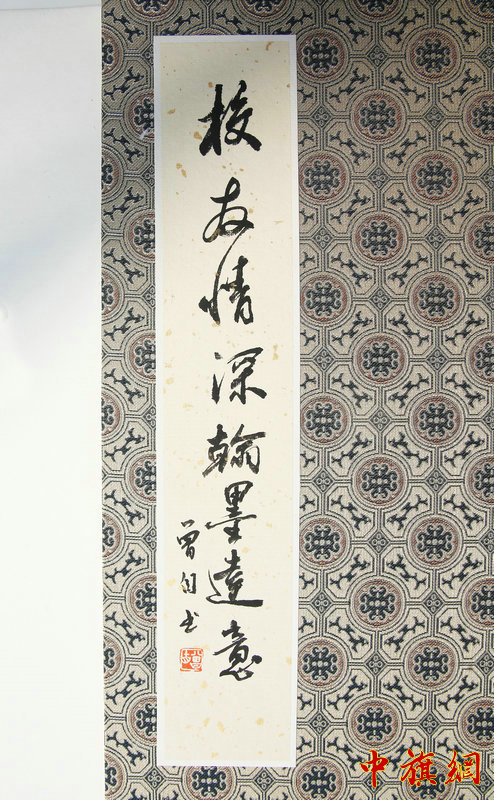 校友情深翰墨達意
曾自书
中旗網